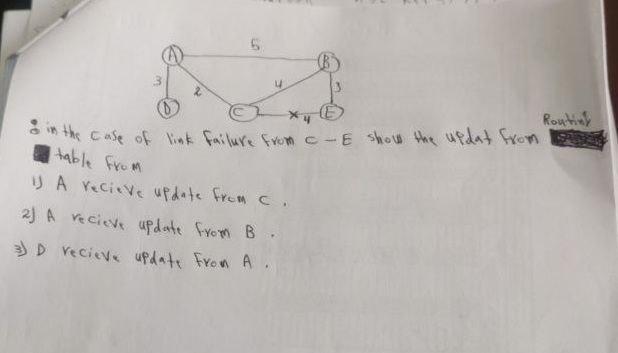 5
A
B
3
2
4
3
D
C
4
E
in the case of link failure from C - E show the updat from Routing
table from
1) A recieve update from C .
2) A recieve update from B .
3) D recieve update from A .